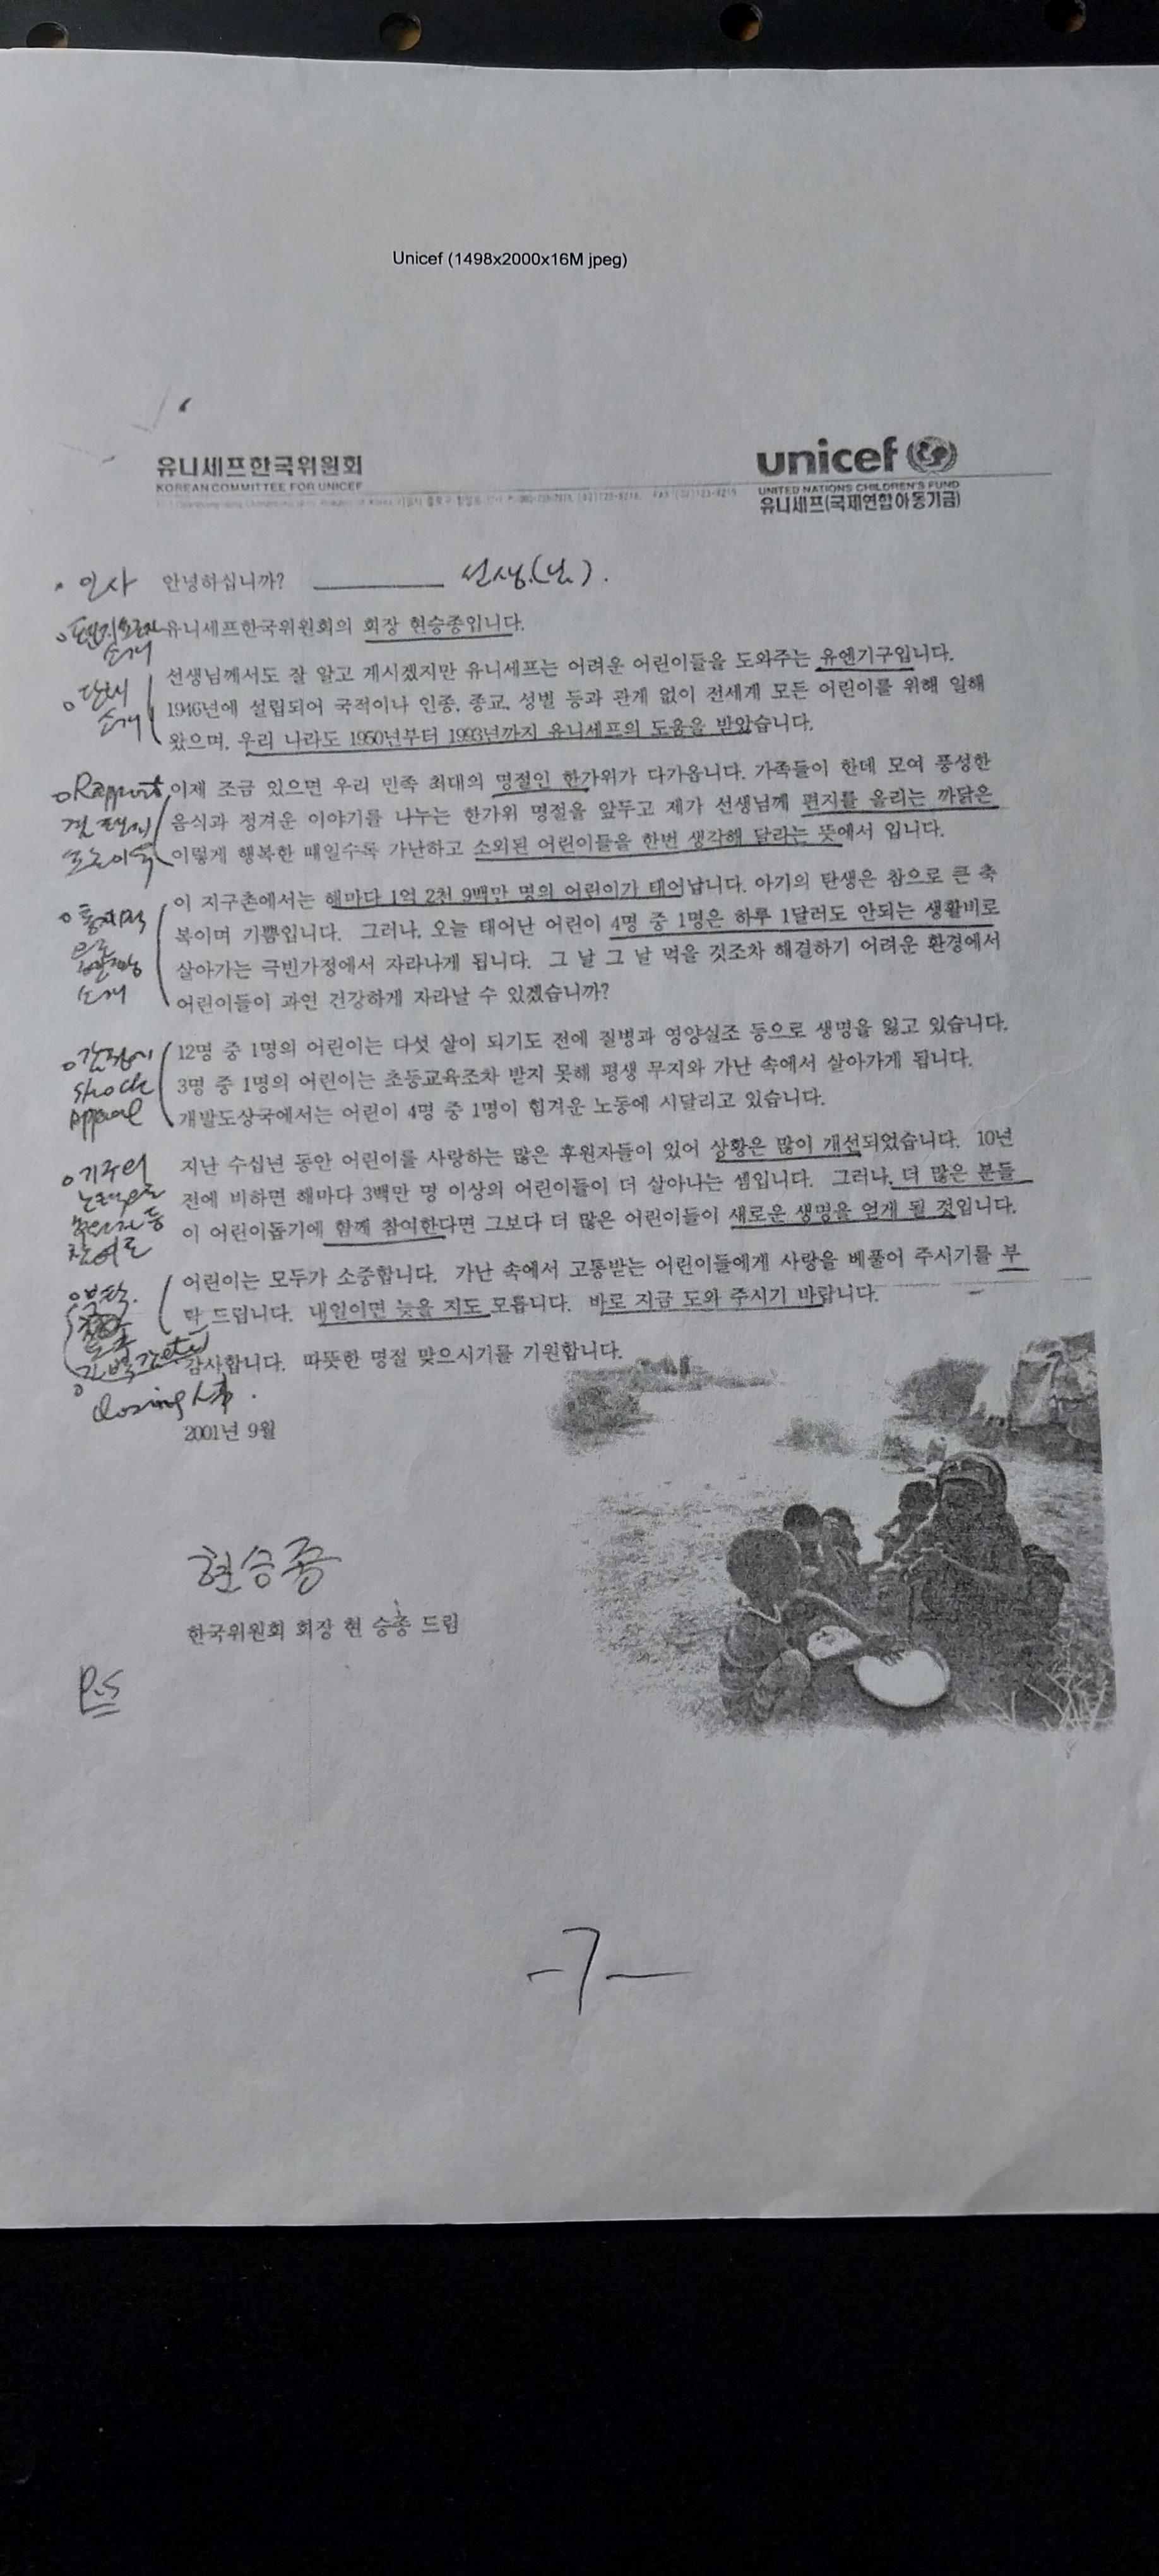 Unicef (1498x2000x16M jpeg)
유니세프한국위원회
KOREAN COMMITTEE FOR UNICEF
unicef
UNITED NATIONS CHILDREN'S FUND
유니세프(국제연합아동기금)
인사 안녕하십니까? 선생(님).
소개 유니세프한국위원회의 회장 현승종입니다.
선생님께서도 잘 알고 계시겠지만 유니세프는 어려운 어린이들을 도와주는 유엔기구입니다.
단체 소개 1946년에 설립되어 국적이나 인종, 종교, 성별 등과 관계 없이 전세계 모든 어린이를 위해 일해
왔으며, 우리 나라도 1950년부터 1993년까지 유니세프의 도움을 받았습니다.
Rapport 이제 조금 있으면 우리 민족 최대의 명절인 한가위가 다가옵니다. 가족들이 한데 모여 풍성한
음식과 정겨운 이야기를 나누는 한가위 명절을 앞두고 제가 선생님께 편지를 올리는 까닭은
이렇게 행복한 때일수록 가난하고 소외된 어린이들을 한번 생각해 달라는 뜻에서 입니다.
이 지구촌에서는 해마다 1억 2천 9백만 명의 어린이가 태어납니다. 아기의 탄생은 참으로 큰 축
복이며 기쁨입니다. 그러나, 오늘 태어난 어린이 4명 중 1명은 하루 1달러도 안되는 생활비로
살아가는 극빈가정에서 자라나게 됩니다. 그 날 그 날 먹을 것조차 해결하기 어려운 환경에서
소개 어린이들이 과연 건강하게 자라날 수 있겠습니까?
12명 중 1명의 어린이는 다섯 살이 되기도 전에 질병과 영양실조 등으로 생명을 잃고 있습니다.
Shock 3명 중 1명의 어린이는 초등교육조차 받지 못해 평생 무지와 가난 속에서 살아가게 됩니다.
Appeal 개발도상국에서는 어린이 4명 중 1명이 힘겨운 노동에 시달리고 있습니다.
지난 수십년 동안 어린이를 사랑하는 많은 후원자들이 있어 상황은 많이 개선되었습니다. 10년
전에 비하면 해마다 3백만 명 이상의 어린이들이 더 살아나는 셈입니다. 그러나, 더 많은 분들
이 어린이돕기에 함께 참여한다면 그보다 더 많은 어린이들이 새로운 생명을 얻게 될 것입니다.
부탁. 어린이는 모두가 소중합니다. 가난 속에서 고통받는 어린이들에게 사랑을 베풀어 주시기를 부
탁 드립니다. 내일이면 늦을 지도 모릅니다. 바로 지금 도와 주시기 바랍니다.
감사합니다. 따뜻한 명절 맞으시기를 기원합니다.
Closing
2001년 9월
현승종
한국위원회 회장 현 승종 드림
P.S
-7-